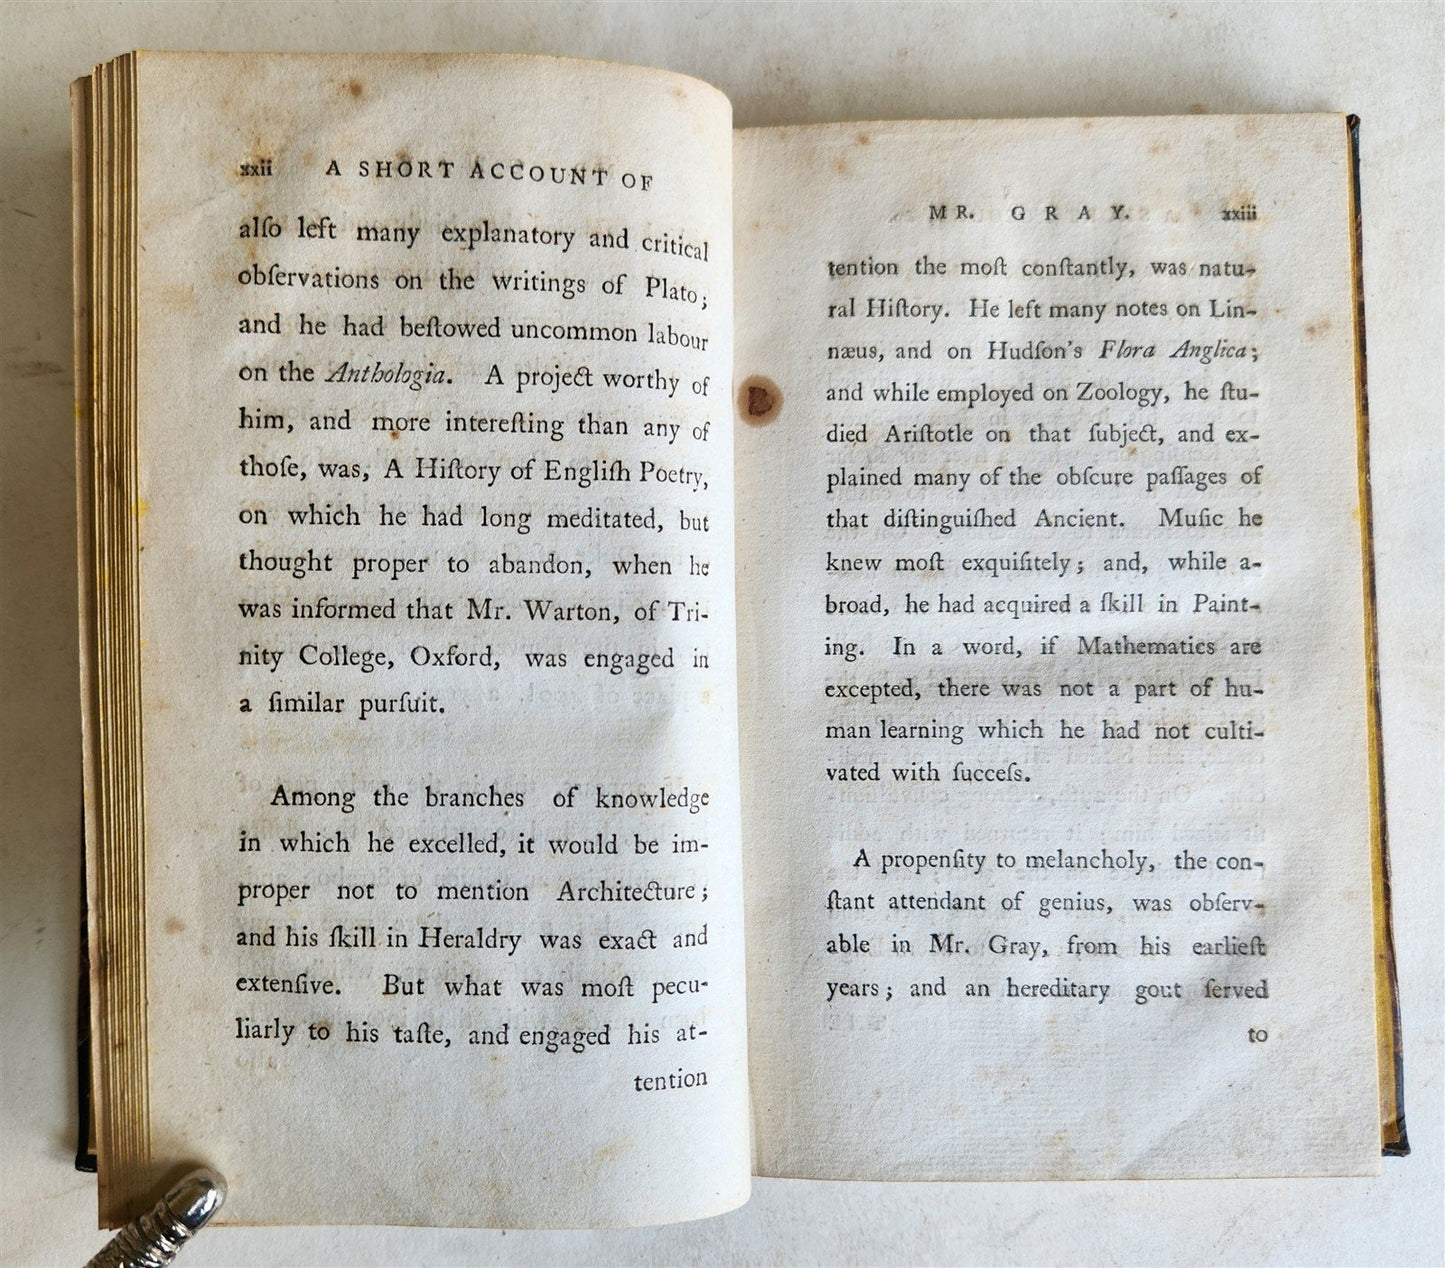 xxii A SHORT ACCOUNT OF
alſo left many explanatory and critical
obſervations on the writings of Plato;
and he had beſtowed uncommon labour
on the Anthologia. A project worthy of
him, and more intereſting than any of
thoſe, was, A Hiſtory of Engliſh Poetry,
on which he had long meditated, but
thought proper to abandon, when he
was informed that Mr. Warton, of Tri-
nity College, Oxford, was engaged in
a ſimilar purſuit.
Among the branches of knowledge
in which he excelled, it would be im-
proper not to mention Architecture;
and his ſkill in Heraldry was exact and
extenſive. But what was moſt pecu-
liarly to his taſte, and engaged his at-
tention
MR. GRAY. xxiii
tention the moſt conſtantly, was natu-
ral Hiſtory. He left many notes on Lin-
næus, and on Hudſon's Flora Anglica;
and while employed on Zoology, he ſtu-
died Ariſtotle on that ſubject, and ex-
plained many of the obſcure paſſages of
that diſtinguiſhed Ancient. Muſic he
knew moſt exquiſitely; and, while a-
broad, he had acquired a ſkill in Paint-
ing. In a word, if Mathematics are
excepted, there was not a part of hu-
man learning which he had not culti-
vated with ſucceſs.
A propenſity to melancholy, the con-
ſtant attendant of genius, was obſerv-
able in Mr. Gray, from his earlieſt
years; and an hereditary gout ſerved
to